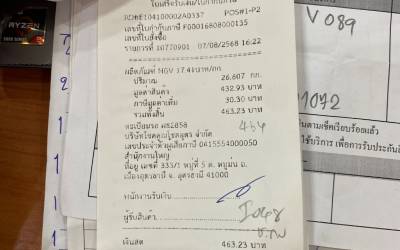 RYZEN
ใบเสร็จรับเงิน/ใบกำกับภาษี
POS#1-P2
เลขที่ใบกำกับภาษี F00016808000135
เลขที่ใบสั่งซื้อ
รายการที่ 10770901 07/08/2568 16:22
ผลิตภัณฑ์ NGV 17.41บาท/กก.
ปริมาณ 26.607 กก.
มูลค่าสินค้า 432.93 บาท
ภาษีมูลค่าเพิ่ม 30.30 บาท
รวมทั้งสิ้น 463.23 บาท
ทะเบียนรถ
บริษัทโชคคูณโชลูตร จำกัด
เลขประจำตัวผู้เสียภาษี 0415554000050
สำนักงานใหญ่
ที่อยู่ เลขที่ 333/1 หมู่ที่ 5 ต.
อ.เมืองอุดรธานี จ. อุดรธานี 41000
พนักงานรับเงิน
ผู้รับสินค้า
เงินสด 463.23 บาท
V 089